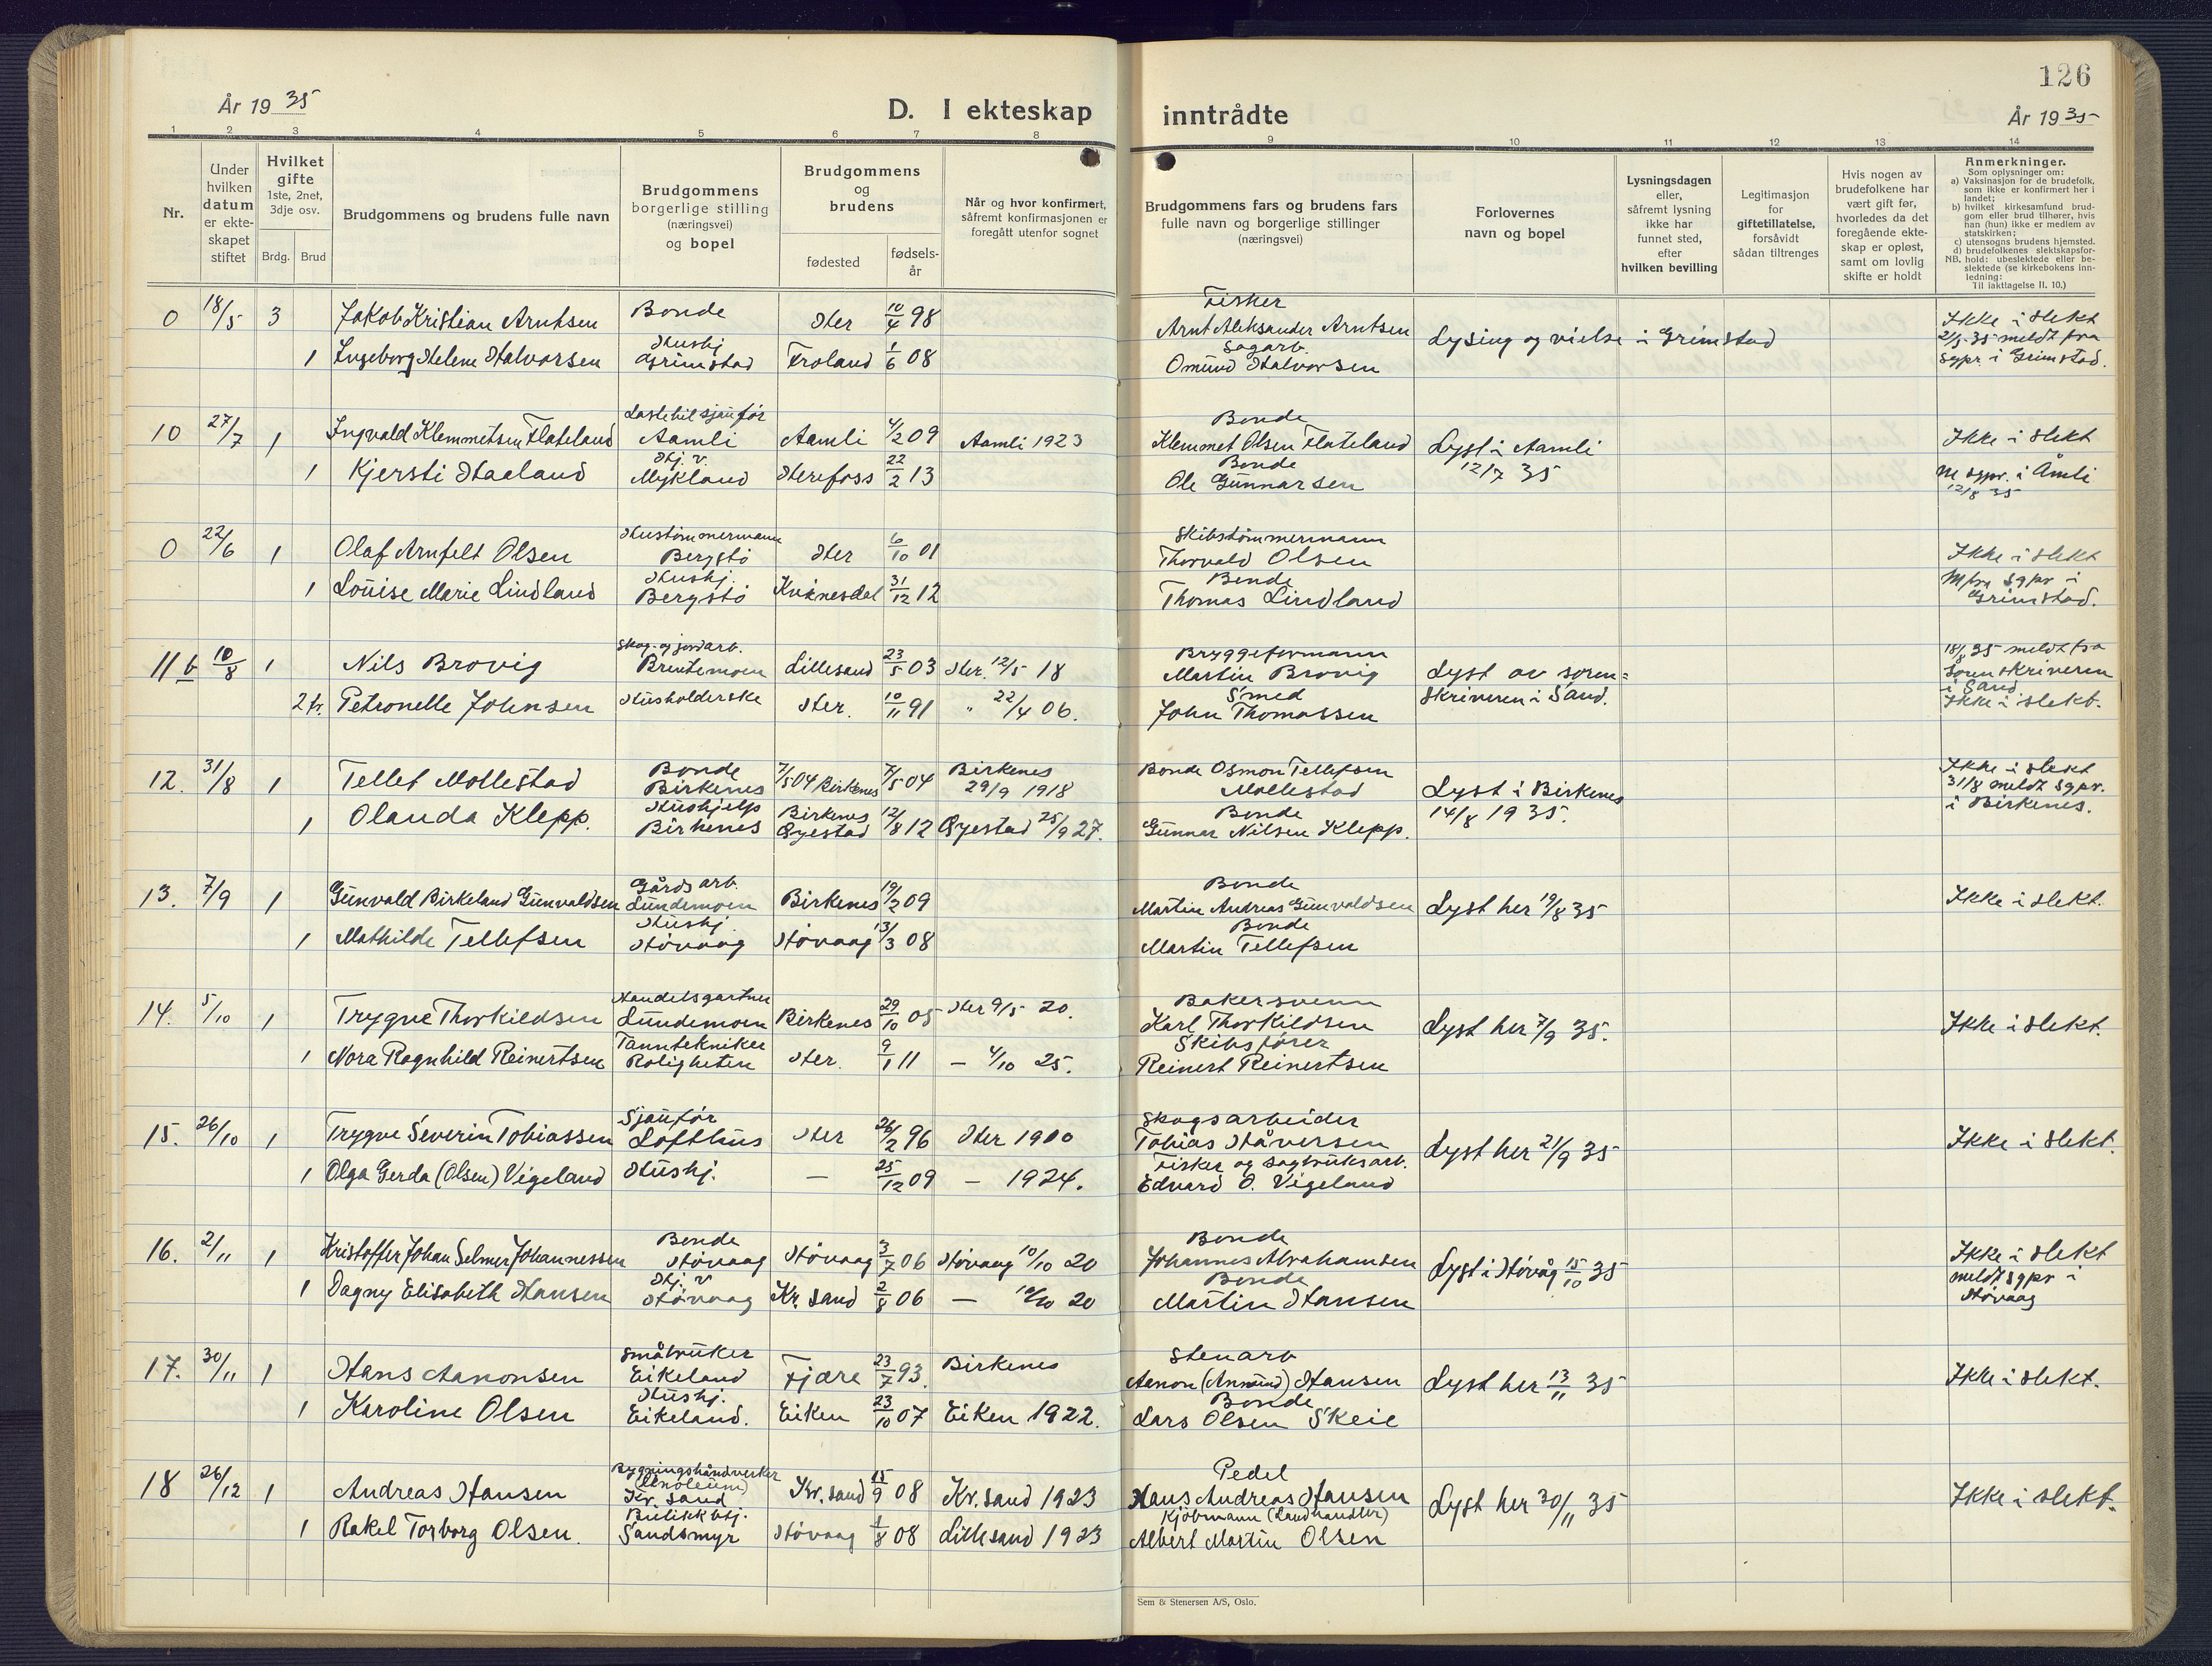 126
År 1935
D. I ekteskap
inntrådte
År 1935
1 2 3 4 5 6 7 8 9 10 11 12 13 14
Nr.
Under hvilken datum er ekte-skapet stiftet
Hvilket gifte
1ste, 2net, 3dje osv.
Brdg. Brud
Brudgommens og brudens fulle navn
Brudgommens borgerlige stilling (næringsvei) og bopel
Brudgommens og brudens
fødested
fødsels-år
Når og hvor konfirmert, såfremt konfirmasjonen er foregått utenfor sognet
Brudgommens fars og brudens fars fulle navn og borgerlige stillinger (næringsvei)
Forlovernes navn og bopel
Lysningsdagen eller, såfremt lysning ikke har funnet sted, efter hvilken bevilling
Legitimasjon for giftetillatelse, forsåvidt sådan tiltrenges
Hvis nogen av brudefolkene har vært gift før, hvorledes da det foregående ekte-skap er opløst, samt om lovlig skifte er holdt
Anmerkninger.
Som oplysninger om:
a) Vaksinasjon for de brudefolk, som ikke er konfirmert her i landet;
b) hvilket kirkesamfund brud-gom eller brud tilhører, hvis han (hun) ikke er medlem av statskirken;
c) utensogns brudens hjemsted.
d) brudefolkenes slektskapsfor-
NB. hold: ubeslektede eller be-slektede (se kirkebokens inn-ledning:
Til iakttagelse II. 10.)
0 18/5 3 Jakob Kristian Arntsen Bonde Her 10/4 98 Fisker Arnt Aleksander Arntsen Lysing og vielse i Grimstad Ikke i slekt
1 Ingeborg Helene Halvorsen Hushj Grimstad Froland 1/6 08 Sagarb. Omund Halvorsen 21/5-35 meldt fra sgpr. i Grimstad.
10 27/7 1 Ingvald Klemmetsen Flateland Lastebilsjaufør Aamli Aamli 4/2 09 Aamli 1923 Bonde Klemmet Olsen Flateland Lyst i Aamli Ikke i slekt
1 Kjersti Haaland Hj. v. Mykland Herefoss 22/2 13 Bonde Ole Gunnarsen 12/7 35 m sgpr. i Åmli 12/8 35
0 22/6 1 Olaf Arnfelt Olsen Hustømmermann Bergstø Her 6/10 01 Skibstømmermann Thorvald Olsen Ikke i slekt
1 Louise Marie Lindland Hushj. Bergstø Kvinesdal 31/12 12 Bonde Thomas Lindland M fra sgpr i Grimstad.
11 b 10/8 1 Nils Brovig Skog- og jordarb. Brentemoen Lillesand 23/5 03 Her. 12/5 18 Bryggeformann Martin Brovig Lyst av soren= 18/8 35 meldt fra sorenskriveren i Sand
2 fr. Petronelle Johnsen Husholderske Her. 10/11 91 " 22/4 06. Smed John Thomassen skriveren i Sand. Ikke i slekt.
12. 31/8 1 Tellef Mollestad Bonde Birkenes 7/5 04 Birkenes 7/5 04 Birkenes 29/9 1918 Bonde Osmon Tellefsen Mollestad Lyst i Birkenes Ikke i slekt
1 Olanda Klepp. Hushjelp Birkenes Birkenes Øyestad 12/8 12 Øyestad 25/9 27. Bonde Gunnar Nilsen Klepp. 14/8 1935. 31/8 meldt sgpr. i Birkenes.
13. 7/9 1 Gunvald Birkeland Gunvaldsen Gårdsarb. Lundemoen Birkenes 19/2 09 Bonde Martin Andreas Gunvaldsen Lyst her 19/8 35 Ikke i slekt.
1 Mathilde Tellefsen Hushj. Høvaag Høvaag 13/3 08 Bonde Martin Tellefsen
14. 5/10 1 Trygve Thorkildsen Handelsgartner Lundemoen Birkenes 29/10 05 Her 9/5 20. Bakersvenn Karl Thorkildsen Lyst her 7/9 35. Ikke i slekt.
1 Nora Ragnhild Reinertsen Tanntekniker Roligheten Her. 9/1 11 — 4/10 25. Skibsfører Reinert Reinertsen
15. 26/10 1 Trygve Severin Tobiassen Sjaufør Lofthus Her 26/2 96 Her 1910 Skogsarbeider Tobias Håversen Lyst her 21/9 35 Ikke i slekt.
1 Olga Gerda (Olsen) Vigeland Hushj. — 25/12 09 — 1924. Fisker og sagbruksarb. Edvard O. Vigeland
16. 2/11 1 Kristoffer Johan Selmer Johannessen Bonde Høvaag Høvaag 3/7 06 Høvaag 10/10 20 Bonde Johannes Abrahamsen Lyst i Høvåg 15/10 35 Ikke i slekt
1 Dagny Elisabeth Hansen Hj. v Høvaag Kr. sand 2/8 06 — 10/10 20 Bonde Martin Hansen meldt sgpr i Høvaag
17. 30/11 1 Hans Aanonsen Småbruker Eikeland Fjære 23/7 93. Birkenes Stenarb Aanon (Anmund) Hansen Lyst her 13/11 35 Ikke i slekt.
1 Karoline Olsen Hushj. Eikeland. Eiken 23/10 07 Eiken 1922. Bonde Lars Olsen Skeie
18 26/12 1 Andreas Hansen Bygningshåndverker (Linoleum) Kr. sand Kr. sand 15/9 08 Kr. sand 1923 Pedel Hans Andreas Hansen Lyst her 30/11 35 Ikke i slekt.
1 Rakel Torborg Olsen. Butikkbtj. Sandsmyr Høvaag 1/8 08 Lillesand 1923 Kjøbmann (Landhandler) Albert Martin Olsen
Sem & Stenersen A/S, Oslo.